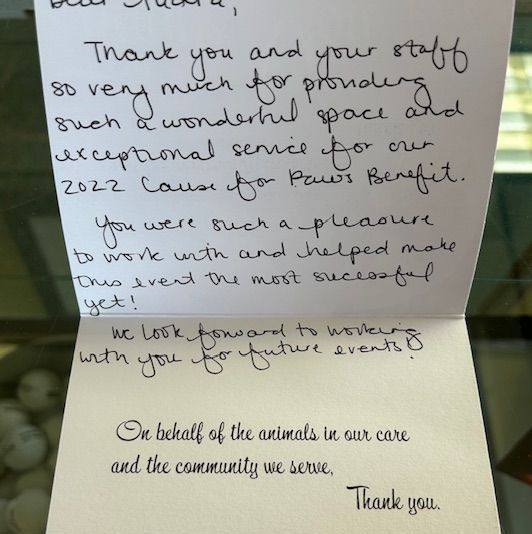 Dear
Thank you and your staff
so very much for providing
such a wonderful space and
exceptional service for our
2022 Cause for Paws Benefit.
You were such a pleasure
to work with and helped make
this event the most successful
yet!
We look forward to working
with you for future events!
On behalf of the animals in our care
and the community we serve,
Thank you.